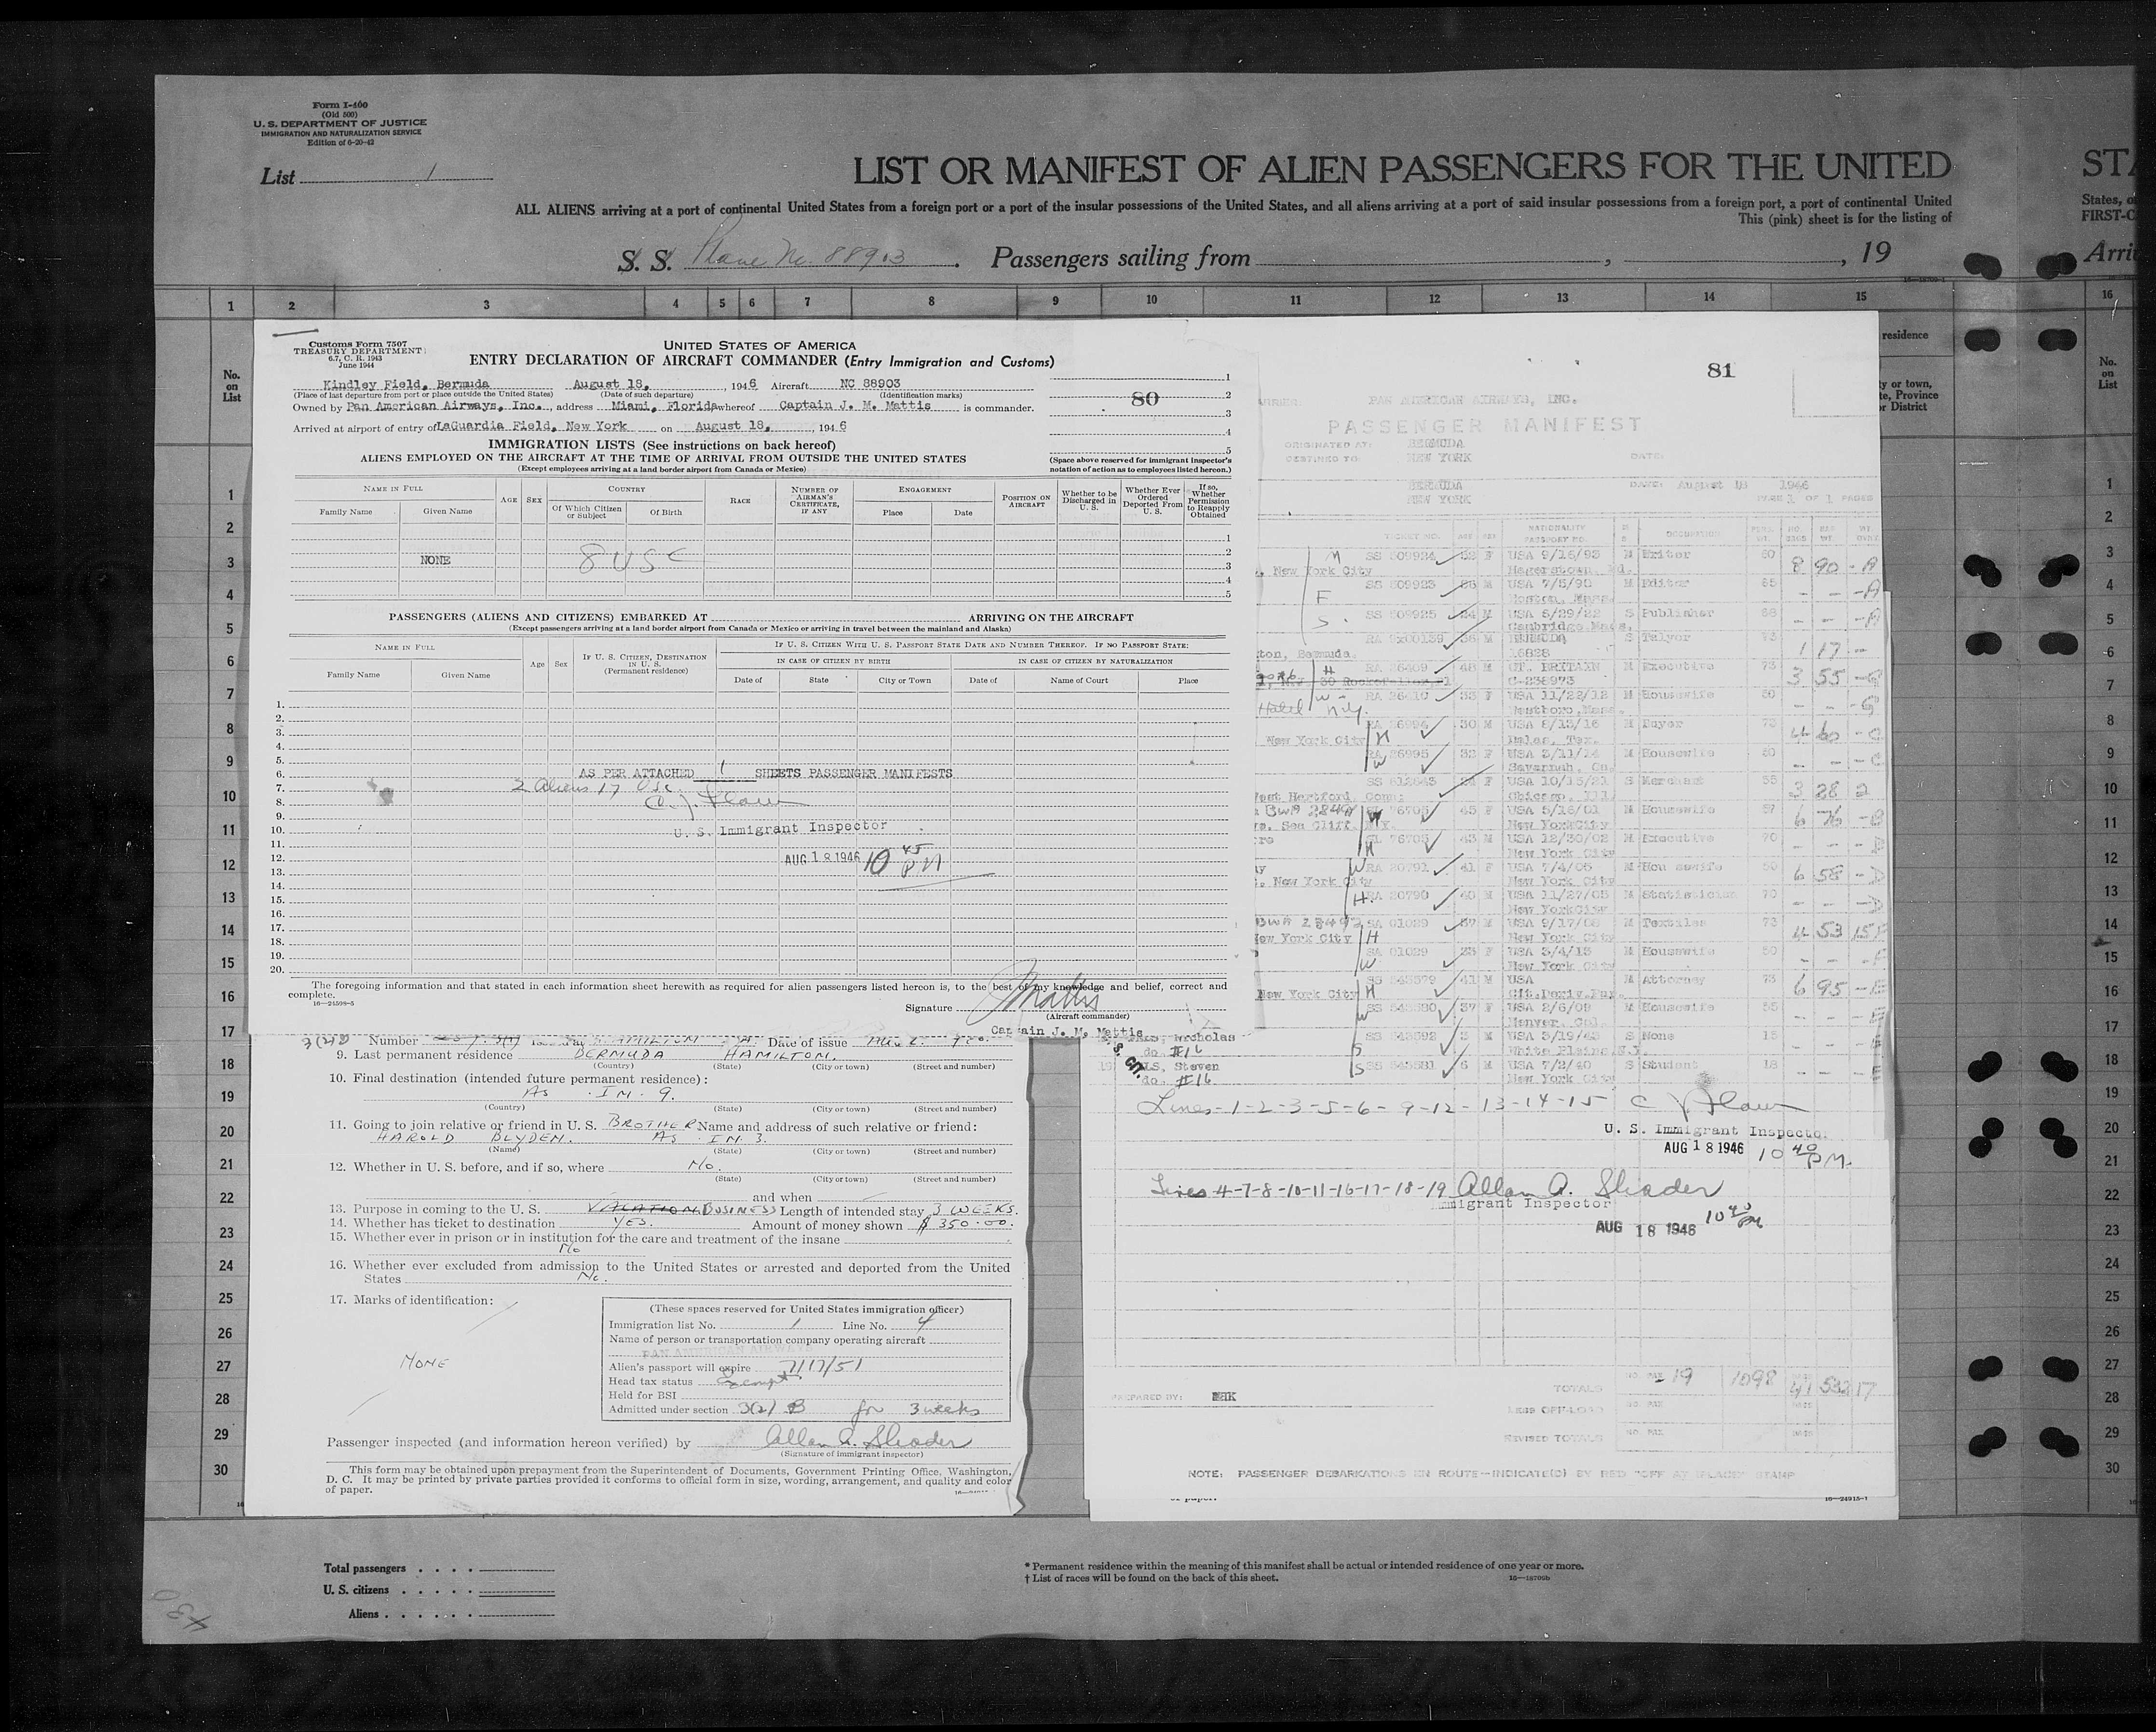 Form I-460
(Old 500)
U. S. DEPARTMENT OF JUSTICE
IMMIGRATION AND NATURALIZATION SERVICE
Edition of 6-20-42
List 1
LIST OR MANIFEST OF ALIEN PASSENGERS FOR THE UNITED
STA
ALL ALIENS arriving at a port of continental United States from a foreign port or a port of the insular possessions of the United States, and all aliens arriving at a port of said insular possessions from a foreign port, a port of continental United
States, o
This (pink) sheet is for the listing of
FIRST-C
S. S. Plane No. 88903. Passengers sailing from , , 19
Arri
1 2 3 4 5 6 7 8 9 10 11 12 13 14 15 16
No. on List
residence
y or town,
te, Province
or District
No. on List
Customs Form 7507
TREASURY DEPARTMENT
6.7, C. R. 1943
June 1944
UNITED STATES OF AMERICA
ENTRY DECLARATION OF AIRCRAFT COMMANDER (Entry Immigration and Customs)
Kindley Field, Bermuda August 18, , 1946 Aircraft NC 88903
(Place of last departure from port or place outside the United States) (Date of such departure) (Identification marks)
Owned by Pan American Airways, Inc., address Miami, Florida whereof Captain J. M. Mattis is commander.
Arrived at airport of entry of LaGuardia Field, New York on August 18, , 1946
80
1
2
3
4
5
IMMIGRATION LISTS (See instructions on back hereof)
ALIENS EMPLOYED ON THE AIRCRAFT AT THE TIME OF ARRIVAL FROM OUTSIDE THE UNITED STATES
(Except employees arriving at a land border airport from Canada or Mexico)
(Space above reserved for immigrant inspector's notation of action as to employees listed hereon.)
NAME IN FULL
Family Name Given Name
AGE SEX
COUNTRY
Of Which Citizen or Subject Of Birth
RACE
NUMBER OF AIRMAN'S CERTIFICATE, IF ANY
ENGAGEMENT
Place Date
POSITION ON AIRCRAFT
Whether to be Discharged in U. S.
Whether Ever Ordered Deported From U. S.
If so, Whether Permission to Reapply Obtained
NONE 8 USC
PASSENGERS (ALIENS AND CITIZENS) EMBARKED AT ARRIVING ON THE AIRCRAFT
(Except passengers arriving at a land border airport from Canada or Mexico or arriving in travel between the mainland and Alaska)
NAME IN FULL
Family Name Given Name
Age Sex
IF U. S. CITIZEN, DESTINATION IN U. S. (Permanent residence)
IF U. S. CITIZEN WITH U. S. PASSPORT STATE DATE AND NUMBER THEREOF. IF NO PASSPORT STATE:
IN CASE OF CITIZEN BY BIRTH
IN CASE OF CITIZEN BY NATURALIZATION
Date of State City or Town Date of Name of Court Place
AS PER ATTACHED 1 SHEETS PASSENGER MANIFESTS
2 Aliens 17 USC
U. S. Immigrant Inspector
AUG 18 1946 10 45 PM
The foregoing information and that stated in each information sheet herewith as required for alien passengers listed hereon is, to the best of my knowledge and belief, correct and
complete.
16-24599-5
Signature J Mattis
(Aircraft commander)
Captain J. M. Mattis
Number Issued at HAMILTON Date of issue
9. Last permanent residence BERMUDA HAMILTON.
(Country) (State) (City or town) (Street and number)
10. Final destination (intended future permanent residence):
AS IN 9.
(Country) (State) (City or town) (Street and number)
11. Going to join relative or friend in U. S. BROTHER Name and address of such relative or friend:
HAROLD BLYDEN. AS IN 3.
(Name) (State) (City or town) (Street and number)
12. Whether in U. S. before, and if so, where No.
(State) (City or town) (Street and number)
and when
13. Purpose in coming to the U. S. VACATION BUSINESS Length of intended stay 3 WEEKS.
14. Whether has ticket to destination YES. Amount of money shown $350.00.
15. Whether ever in prison or in institution for the care and treatment of the insane
No
16. Whether ever excluded from admission to the United States or arrested and deported from the United
States No.
17. Marks of identification:
NONE
(These spaces reserved for United States immigration officer)
Immigration list No. 1 Line No. 4
Name of person or transportation company operating aircraft
PAN AMERICAN AIRWAYS
Alien's passport will expire 7/17/51
Head tax status Exempt
Held for BSI
Admitted under section 3(2) B for 3 weeks
Passenger inspected (and information hereon verified) by Allan A. Shader
(Signature of immigrant inspector)
This form may be obtained upon prepayment from the Superintendent of Documents, Government Printing Office, Washington,
D. C. It may be printed by private parties provided it conforms to official form in size, wording, arrangement, and quality and color
of paper.
81
PAN AMERICAN AIRWAYS, INC.
PASSENGER MANIFEST
ORIGINATED AT: BERMUDA
DESTINED TO: NEW YORK DATE:
BERMUDA DATE: August 18 1946
NEW YORK PAGE 1 OF 1 PAGES
TICKET NO. AGE SEX NATIONALITY PASSPORT NO. OCCUPATION
M SS 609924 F USA 9/16/93 M Writer 60
, New York City Hagerstown, Md. 8 90 - A
SS 609923 M USA 7/5/90 M Editor 85
F Boston, Mass. - - - A
SS 609925 24 M USA 6/29/22 S Publisher 88
S. Cambridge, Mass. - - - A
36 M BERMUDA S Talyor 73
ton, Bermuda. 16828 1 17 -
H RA 26409 48 M GT. BRITAIN M Executive 73
30 Rockefeller C-238973 3 55 - G
W RA 26410 33 F USA 11/22/12 M Housewife 50
Hotel N.Y. Westboro, Mass. - - - G
RA 26994 30 M USA 8/13/16 M Buyer 73
New York City H Dalas, Tex. 4 60 - C
RA 26995 32 F USA 3/11/14 M Housewife 50
W Savannah, Ga. - - - C
SS 612643 24 F USA 10/15/21 S Merchant 55
West Hartford, Conn: Chicago, Ill. 3 28 2
76705 W 45 F USA 5/16/01 M Housewife 57
Sea Cliff, N.Y. New York City 6 76 - B
76705 43 M USA 12/30/02 M Executive 70
H New York City - - -
W RA 20791 41 F USA 7/4/05 M Hou sewife 50
, New York City New York City 6 58 - A
H RA 20790 40 M USA 11/27/05 M Statistician 70
New York City - - - A
SA 01029 37 M USA 9/17/08 M Textiles 73
New York City H New York City 4 53 15 F
SA 01029 33 F USA 3/4/13 M Housewife 50
W New York City - - - F
SS 543579 41 M USA M Attorney 73
New York City H 6 95 - E
SS 543580 37 F USA 2/6/09 M Housewife 55
W Denver, Col. - - - E
SS 543592 3 M USA 3/19/43 S None 15
Nicholas S White Plains, N.Y. - - - E
do. #16
SS 543581 6 M USA 7/2/40 S Student 18
Steven S New York City - - - E
do. #16
Lines-1-2-3-5-6-9-12-13-14-15
U. S. Immigrant Inspector
AUG 18 1946 10 40 P.M.
Lines 4-7-8-10-11-16-17-18-19 Allan A. Shader
Immigrant Inspector
AUG 18 1946 10 40 PM
PREPARED BY: MHK
TOTALS NO. PAX 19 1098 41 532 17
LESS OFF-LOAD NO. PAX
REVISED TOTALS NO. PAX
NOTE: PASSENGER DEBARKATIONS EN ROUTE—INDICATE(D) BY RED "OFF AT (PLACE)" STAMP
of paper.
16-24915-1
Total passengers
U. S. citizens
Aliens
* Permanent residence within the meaning of this manifest shall be actual or intended residence of one year or more.
† List of races will be found on the back of this sheet.
16-18709b
430